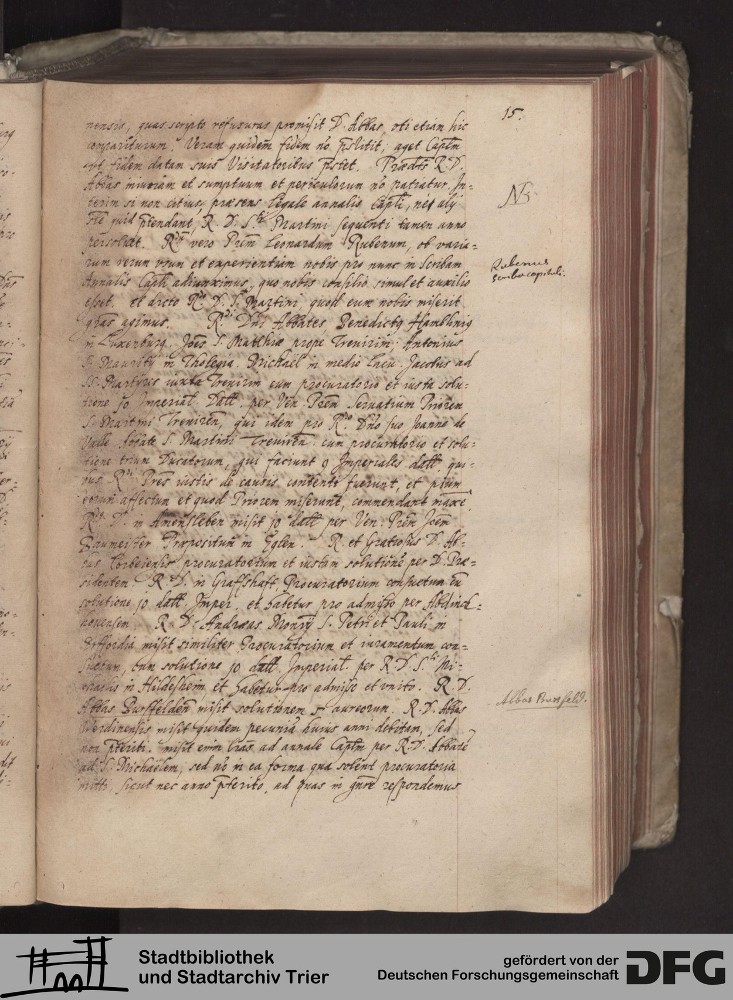 15.
nensis, quas scripto refusuras promisit D. Abbas, uti etiam hic
compariturum. Veram quidem fidem nō p̄stitit, aget Captm̄
ut fidem datam suis Visitatoribus p̄stet. Prædict. R. D.
Abbas iniuriam et sumptuum et periculorum nō patiatur. In-
NB.
terim si non citius, præsens legale annalis Capli, neq alij
quid p̄tendant, R. D. S. Martini sequenti tamen anno
persolvat. R. vero Prem Leonardum Rubenum, ob varia-
rum rerum usum et experientiam nobis pro nunc in Scribam
Rubenus
scriba capituli.
Annalis Capli adiunximus, quo nobis consilio simul et auxilio
esset, et dicto R. D. S. Martini quod eum nobis miserit
gras agimus. R. Dni Abbates, Benedictq
in Luxenburg, Joēs S. Matthiæ prope Trevirim, Antonius
S. Mauritij in Tholegia, Michael in medio lacu, Jacobus ad
SS. Martyres iuxta Trevirim cum procuratorio et iusta solu-
tione 10 Imperial. Dall. per Ven. Prem Servatium Priorem
S. Martini Treviren, qui idem pro R. Dno suo Joanne de
Abbate S. Martini Treviren. cum procuratorio et solu-
tione trium Ducatorum, qui faciunt 9 Imperiales dall. qui-
bus R. Pres iustis de causis contenti fuerunt, et pium
eorum affectum et quod Priorem miserunt, commendant maxe.
R. D. in Amensleben misit 10 dall. per Ven. Prem Joem
Baumeister Præpositum in Eglen. R. et Gratiosus D. Ab-
bas Corbeiensis procuratorium et iustam solutionē per D. Præ-
sidentem. R. D. in Graffschafft, Procuratorium consuetum cū
solutione 10 dall. Imper. et habetur pro admisso per Abdinck-
hovensem. R. D. Andræas Monrij S. Petri et Pauli in
misit similiter Procuratorium et iuramentum con-
suetum, cum solutione 10 dall. Imperial. per R. D. S. Mi-
chaelis in Hildesheim, et habetur pro admisso et unito. R. D.
Abbas Bursfelden misit solutionem aureorum. R. D. Abbas
Abbas Bursfeld.
Werdinensis misit quidem pecuniā huius anni debitam, sed
non p̄teriti. misit enim lras ad annale Captm̄ per R. D. Abbatē
ad S. Michaelem, sed nō in ea forma qua solent procuratoria
mitti, sicut nec anno p̄terito, ad quas in gnre respondemus
Stadtbibliothek
und Stadtarchiv Trier
gefördert von der
Deutschen Forschungsgemeinschaft
DFG